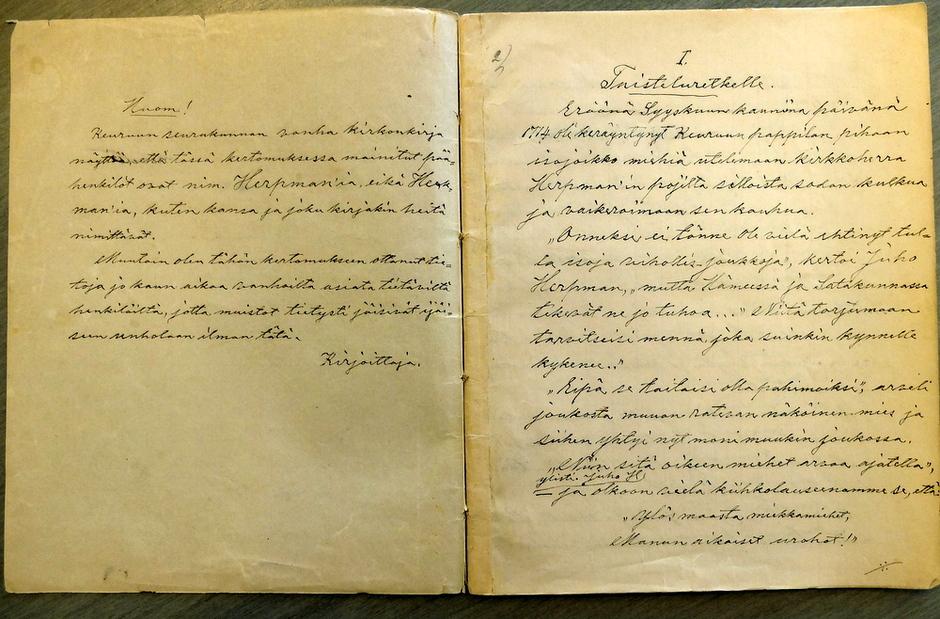 Huom!
Keuruun seurakunnan vanha kirkonkirja
näyttää että tässä kertomuksessa mainitut pää=
henkilöt ovat nim. Herpman'ia, eikä Herk-
man'ia, kuten kansa ja joku kirjakin heitä
nimittävät.
Muutoin olen tähän kertomukseen ottanut tie=
toja jo kauan aikaa vanhoilta asiata tietäviltä
henkilöiltä, jotta muistot tietysti jäisivät ijäi=
seen unholaan ilman tätä.
Kirjoittaja.
2/
I.
Taisteluretkelle.
Eräänä Syyskuun kauniina päivänä
1714 oli keräyntynyt Keuruun pappilan pihaan
isojoukko miehiä utelemaan kirkkoherra
Herpman'in pojilta silloista sodan kulkua
ja vaikeroimaan sen kauhua.
„Onneksi ei tänne ole vielä ehtinyt tul-
la isoja vihollis-joukkoja", kertoi Juho
Herpman, „mutta Hämeessä ja Satakunnassa
tekevät ne jo tuhoa..." Niitä torjumaan
tarvitseisi mennä joka suinkin kynnelle
kykenee.."
„Eipä se taitaisi olla pahimoiksi", arveli
joukosta muuan ratevan näköinen mies ja
siihen yhtyi nyt moni muukin joukossa.
„Niin sitä oikeen miehet arvaa ajatella",
ylisti Juho H
— ja olkoon vielä kiihkolauseenamme se, että
„Ylös maasta miekkamiehet,
Manun ikäiset urohot!"